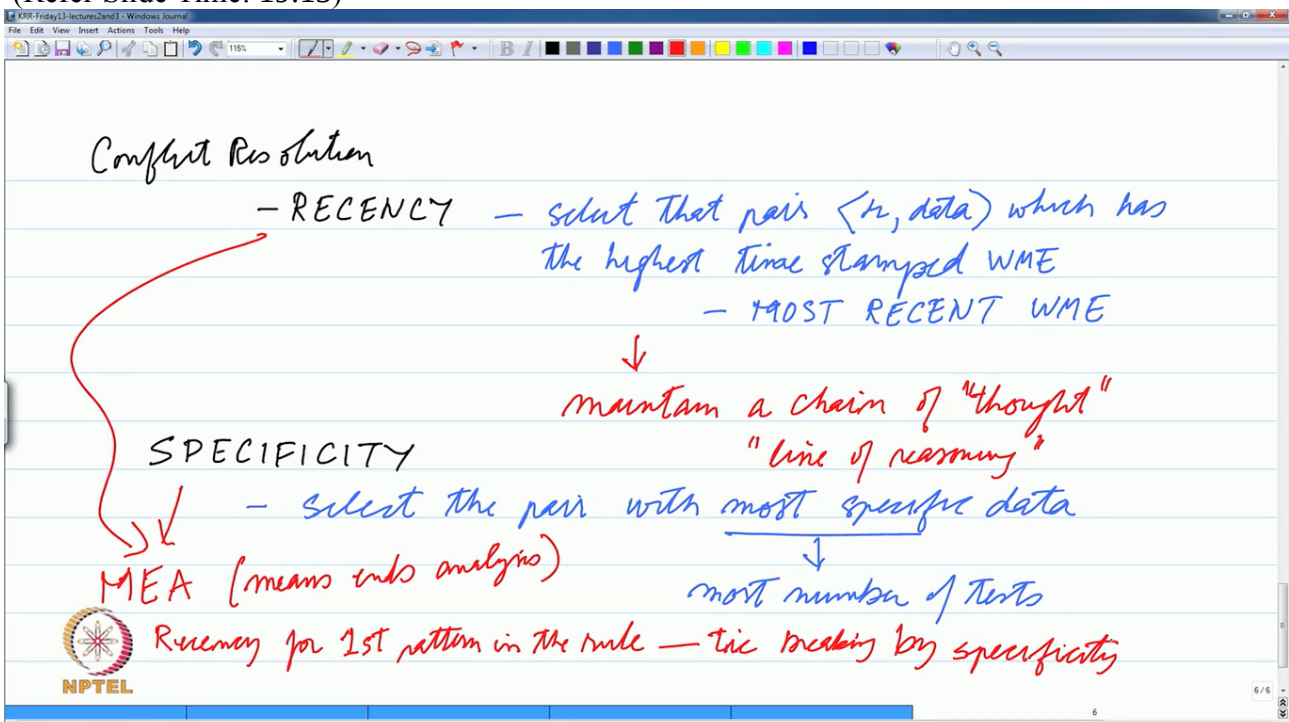 (Refer Slide Time: 15:15)
KRR-Friday13-lectures2and3 - Windows Journal
File Edit View Insert Actions Tools Help
115%
B I
Conflict Resolution
- RECENCY - select that pair <r, data> which has
the highest time stamped WME
- MOST RECENT WME
↓
maintain a chain of "thought"
"line of reasoning"
SPECIFICITY
- select the pair with most specific data
↓
MEA (means ends analysis)
most number of tests
Recency for 1st pattern in the rule - tie breaking by specificity
NPTEL
6/6
6